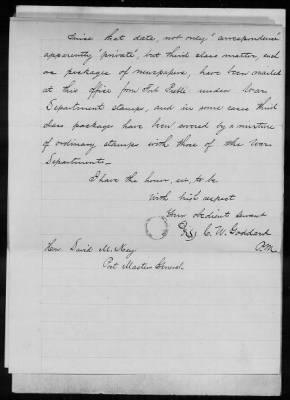 Since that date, not only "correspondence"
apparently "private", but third class matter, such
as packages of newspapers, have been mailed
at this office from Fort Preble under War
Department stamps, and in some cases third
class packages have been covered by a mixture
of ordinary stamps with those of the War
Department.
I have the honor, sir, to be
With high respect
Your obedient servant
C. W. Goddard
P.M.
Hon. David M. Key
Post Master General